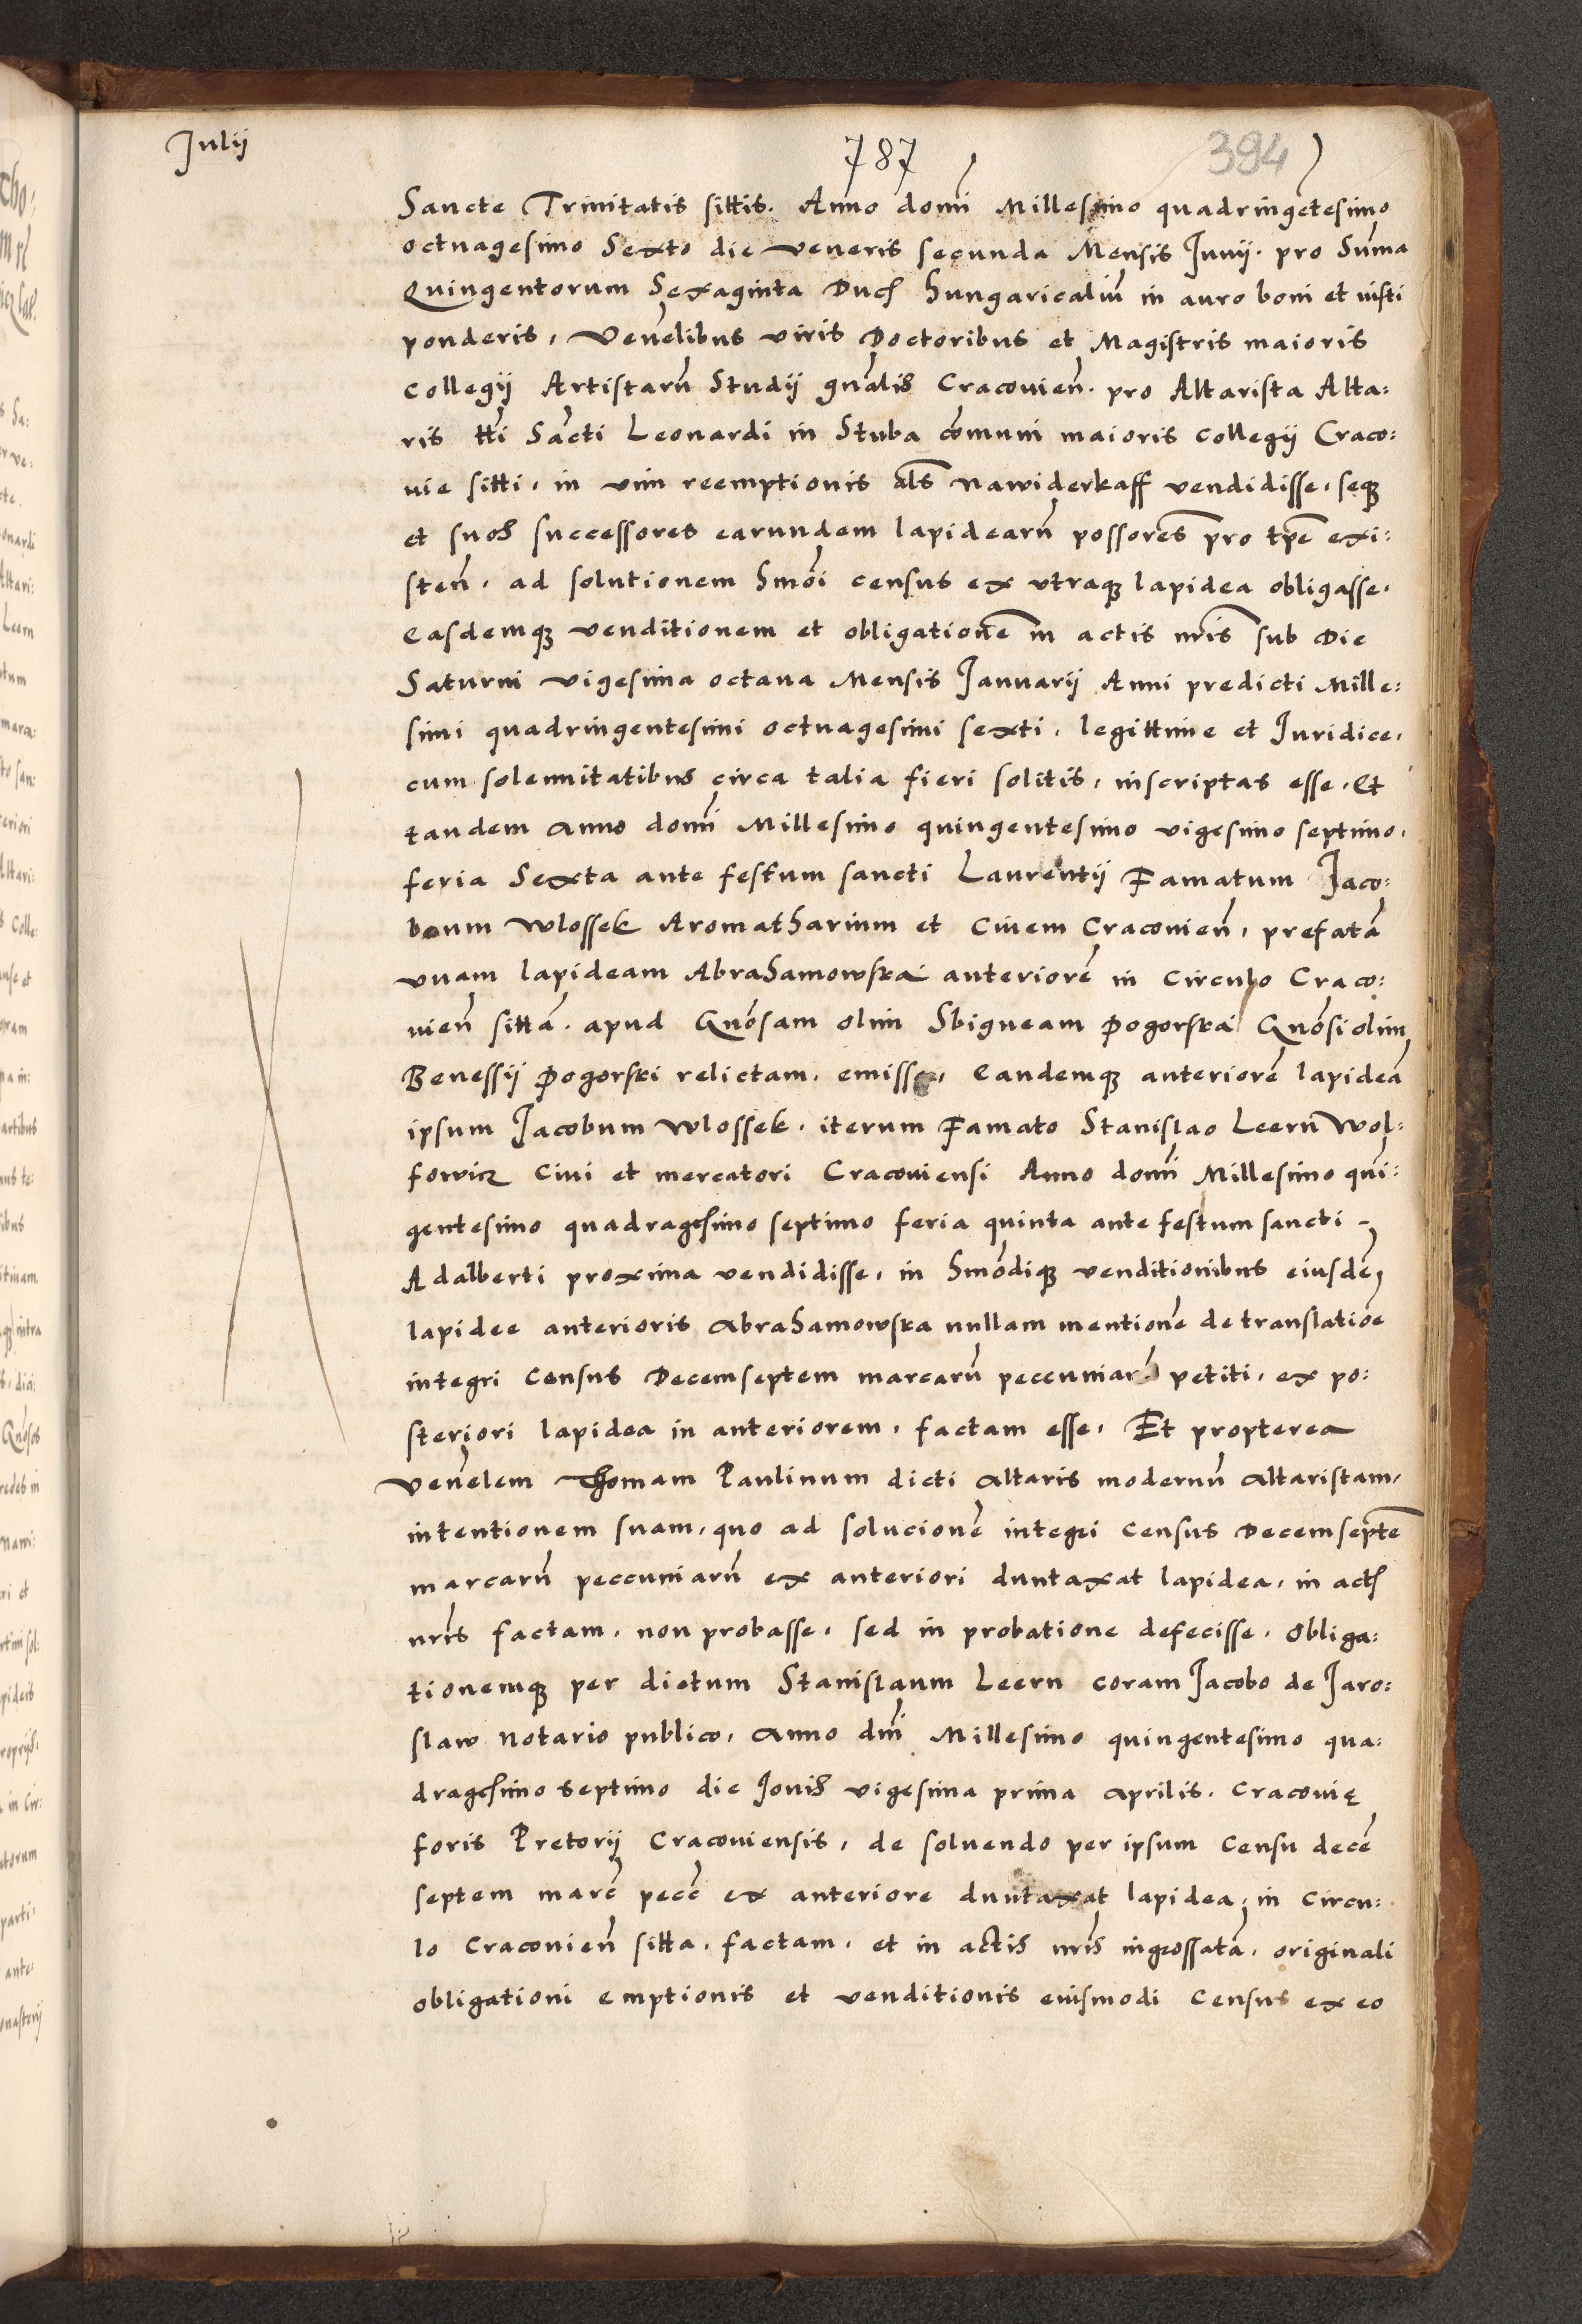 Julij
787
394
Sancte Trinitatis sittis. Anno domi Millesimo quadringetesimo
octuagesimo Sexto die veneris secunda Mensis Junij. pro Suma
Quingentorum Sexaginta Duc Hungaricaliu in auro boni et iusti
ponderis, Venelibus viris Doctoribus et Magistris maioris
collegij Artistaru Studij gnalis Cracouien. pro Altarista Alta:
ris tti Sacti Leonardi in Stuba comuni maioris collegij Craco:
uie sitti, in vim reemptionis als nawiderkaff vendidisse, seq
et suos successores earundem lapidearu possores pro tpe exi:
sten, ad solutionem Hmoi census ex vtraq lapidea obligasse,
Easdemq venditionem et obligatione in actis nris sub Die
Saturni vigesima octaua Mensis Januarij Anni predicti Mille:
simi quadringentesimi octuagesimi sexti, legittime et Juridice,
cum solennitatibus circa talia fieri solitis, inscriptas esse, Et
tandem Anno domi Millesimo quingentesimo vigesimo septimo,
feria Sexta ante festum sancti Laurentij Famatum Jaco:
bum Wlossek Aromatharium et Ciuem Cracouien, prefata
vnam lapideam Abrahamowska anteriore in Circulo Craco:
uien sitta. apud Gnosam olim Sbigneam Pogorska Gnosi olim
Benessij Pogorski relictam, emisse, Eandemq anteriore lapidea
ipsum Jacobum Wlossek, iterum Famato Stanislao Leern Wol:
fowicz Ciui et mercatori Cracouiensi Anno domi Millesimo qui:
gentesimo quadragesimo septimo feria quinta ante festum sancti -
Adalberti proxima vendidisse, in Hmodiq venditionibus eiusde
lapidee anterioris Abrahamowska nullam mentione de translatioe
integri Census Decemseptem marcaru peccuniaru petiti, ex po:
steriori lapidea in anteriorem, factam esse, Et propterea
Venelem Thomam Paulinum dicti Altaris modernu Altaristam,
intentionem suam, quo ad solucione integri Census Decemsepte
marcaru peccuniaru ex anteriori duntaxat lapidea, in act
nris factam, non probasse, sed in probatione defecisse, Obliga:
tionemq per dictum Stanislaum Leern coram Jacobo de Jaro:
slaw Notario publico, Anno dni Millesimo quingentesimo qua:
dragesimo septimo die Jouis vigesima prima Aprilis. Cracouię
foris Pretorij Cracouiensis, de soluendo per ipsum Censu dece
septem marc pecc ex anteriore duntaxat lapidea, in Circu:
lo Cracouien sitta, factam, et in actis nris ingrossata, originali
obligationi emptionis et venditionis eiusmodi Census ex eo